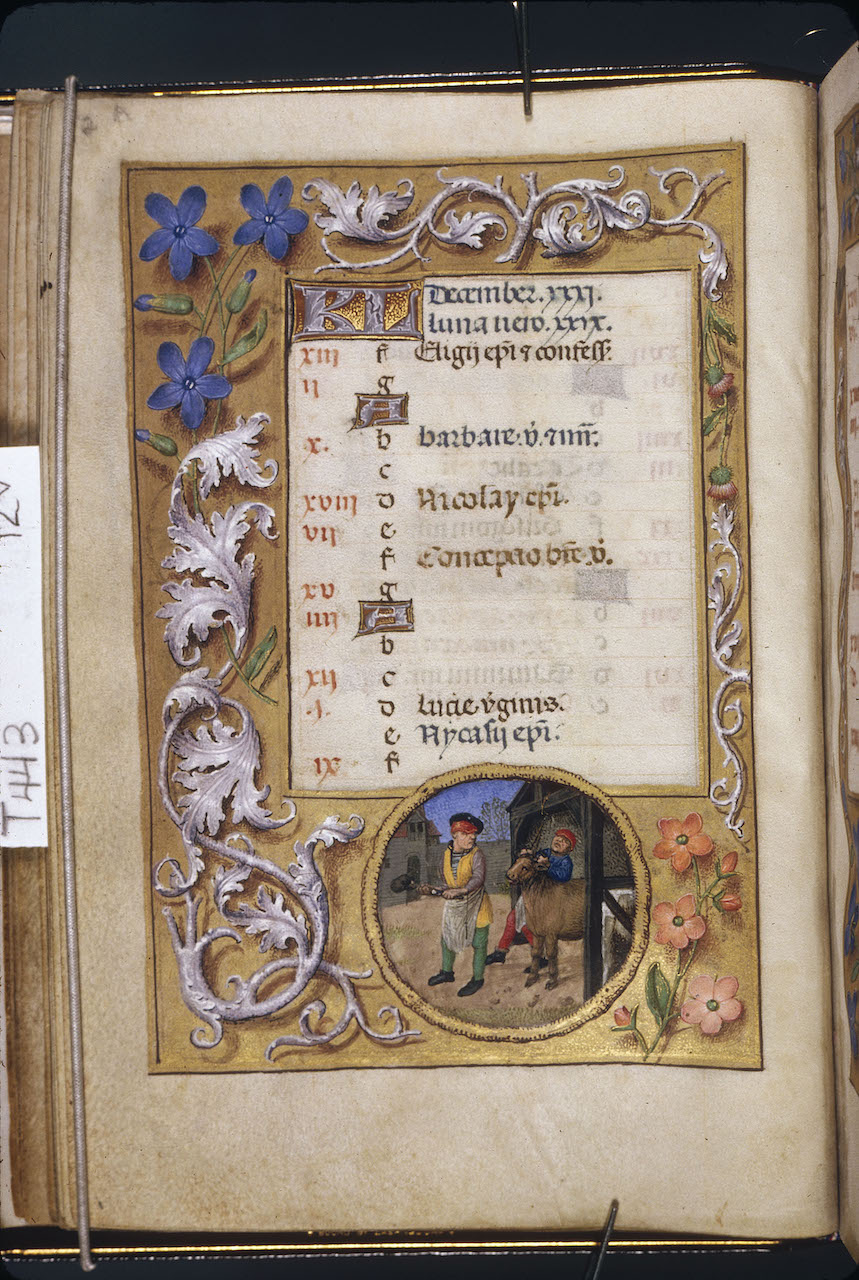 KL December. xxxj.
luna vero. xxix.
xiii f Eligij epi & confess.
ii g
A
x. b barbare. v. & mr.
c
xviii d Nicolay epi.
vii e
f Conceptio bte. v.
xv g
iiii A
b
xii c
.j. d Lucie v̾ginis.
e Nycasij epi.
ix f
T443
12v